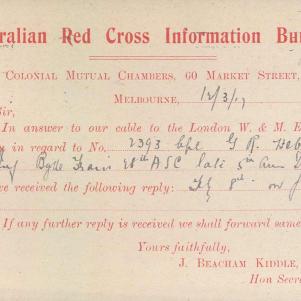 ralian Red Cross Information Bu
Colonial Mutual Chambers, 60 Market Street,
Melbourne, 12/3/17
Sir,
In answer to our cable to the London W. & M. E
in regard to No. 2393 Cpl G. R.
Train 28th ASC late 5th
we received the following reply:
If any further reply is received we shall forward same
Yours faithfully,
J. Beacham Kiddle,
Hon Secre